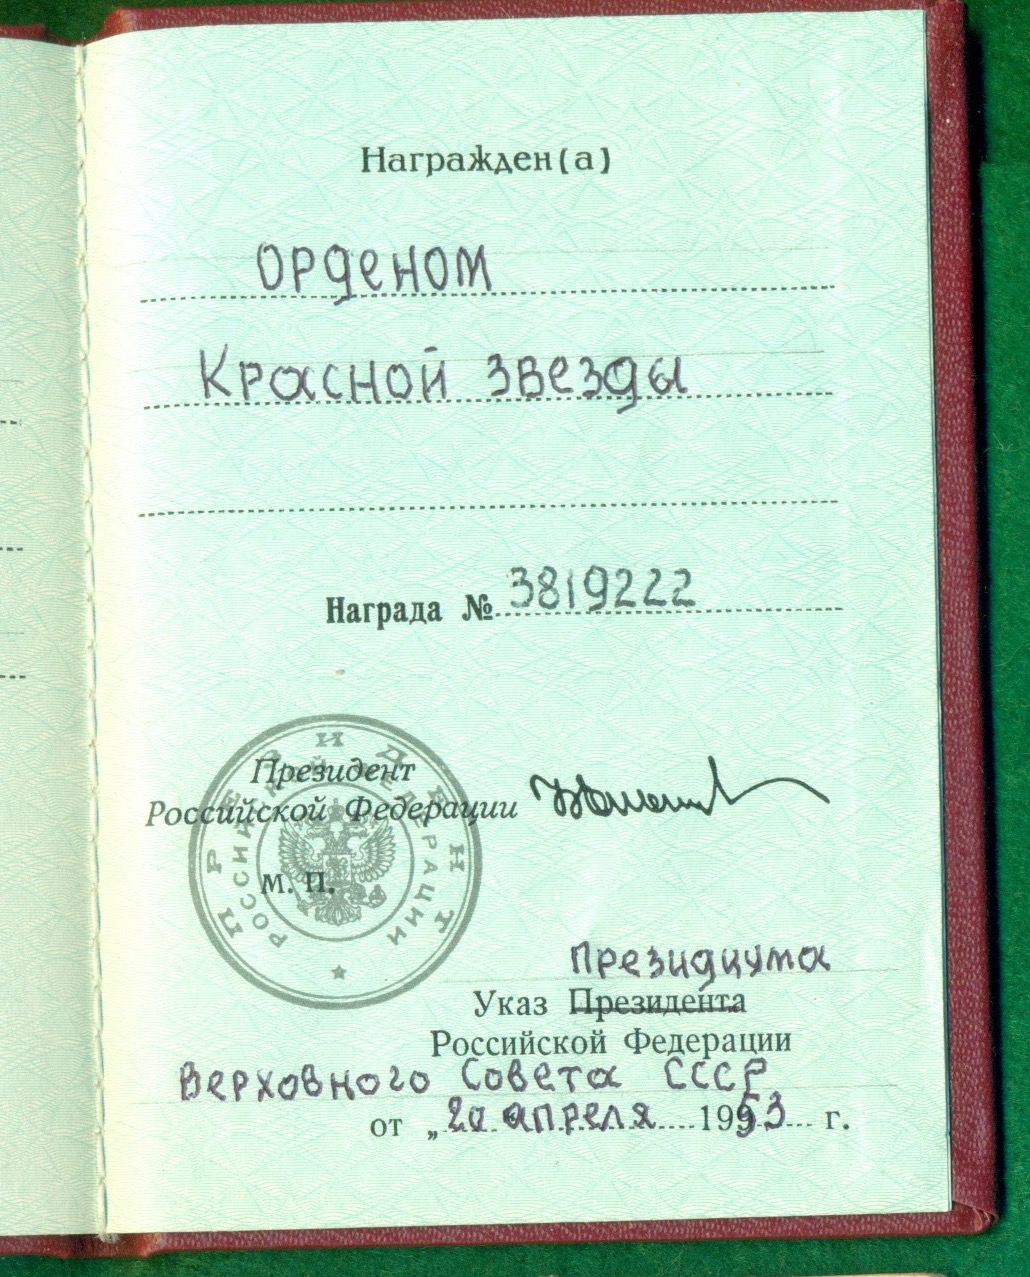 Награжден(а)
орденом
Красной звезды
Награда № 3819222
Президент
Российской Федерации
М. П.
ПРЕЗИДЕНТ
РОССИЙСКОЙ ФЕДЕРАЦИИ
Президиума
Указ Президента
Российской Федерации
Верховного Совета СССР
от „ апреля 1953 г.